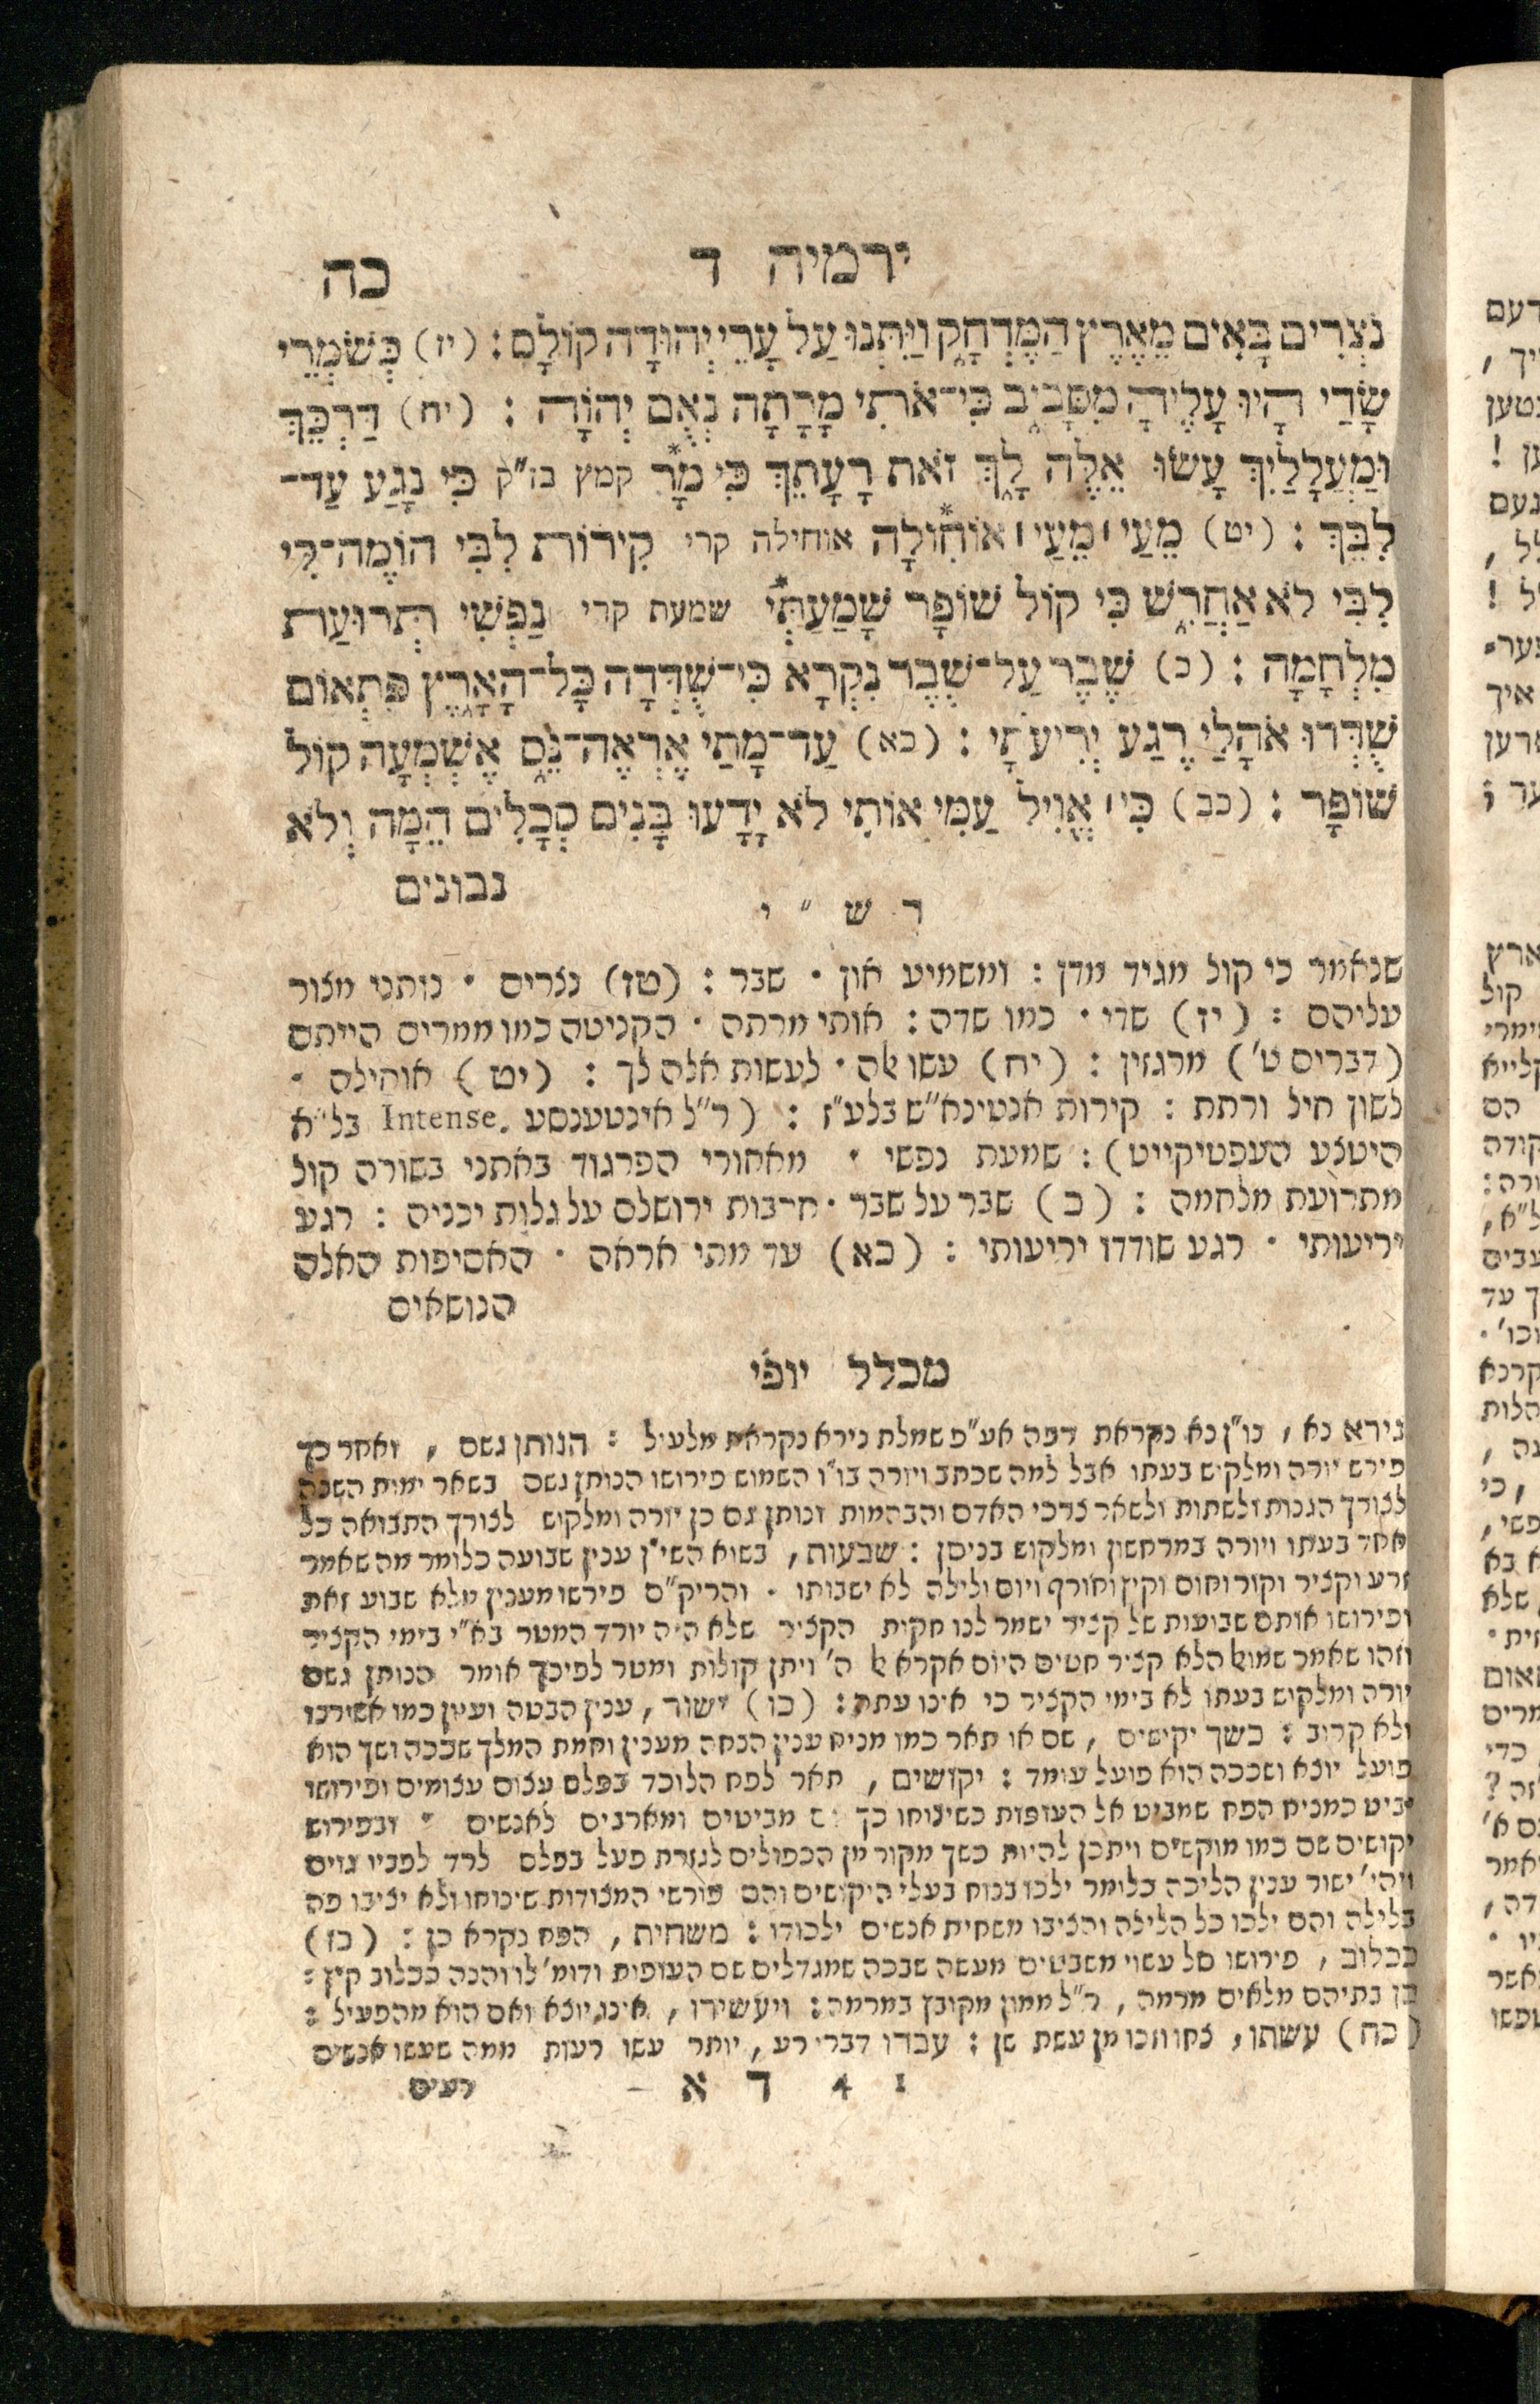 ירמיה ד כה
נֹצְרִים בָּאִים מֵאֶרֶץ הַמֶּרְחָק וַיִּתְּנוּ עַל עָרֵי יְהוּדָה קוֹלָם : (יז) כְּשֹׁמְרֵי
שָׂדַי הָיוּ עָלֶיהָ מִסָּבִיב כִּי־אֹתִי מָרָתָה נְאֻם יְהוָֹה : (יח) דַּרְכֵּךְ
וּמַעֲלָלַיִךְ עָשׂוּ אֵלֶּה לָךְ זֹאת רָעָתֵךְ כִּי מָר* קמץ בז״ק כִּי נָגַע עַד־
לִבֵּךְ : (יט) מֵעַי ׀ מֵעַי ׀ אוֹחִולָה* אוחילה קרי קִירוֹת לִבִּי הוֹמֶה־לִּי
לִבִּי לֹא אַחֲרִשׁ כִּי קוֹל שׁוֹפָר שָׁמַעַתְּי* שמעת קרי נַפְשִׁי תְּרוּעַת
מִלְחָמָה : (כ) שֶׁבֶר עַל־שֶׁבֶר נִקְרָא כִּי־שֻׁדְּדָה כָּל־הָאָרֶץ פִּתְאוֹם
שֻׁדְּדוּ אֹהָלַי רֶגַע יְרִיעֹתָי : (כא) עַד־מָתַי אֶרְאֶה־נֵּס אֶשְׁמְעָה קוֹל
שׁוֹפָר : (כב) כִּי ׀ אֱוִיל עַמִּי אוֹתִי לֹא יָדָעוּ בָּנִים סְכָלִים הֵמָּה וְלֹא
נבונים
ר ש ״ י
שנאמר כי קול מגיד מדן : ומשמיע און · שבר : (טז) נצרים · נותני מצור
עליהם : (יז) שדי · כמו שדה : אותי מרתה · הקניטה כמו ממרים הייתם
(דברים ט׳) מרגזין : (יח) עשו אלה · לעשות אלה לך : (יט) אוהילה ·
לשון חיל ורתת : קירות אנטינא״ש בלע״ז : (ר״ל אינטענסע Intense. בל״א
היטצע העפטיקייט) : שמעת נפשי · מאחורי הפרגוד באתני בשורה קול
מתרועת מלחמה : (כ) שבר על שבר · חרבות ירושלם על גלות יכניה : רגע
יריעותי · רגע שודדו יריעותי : (כא) עד מתי אראה · האסיפות האלה
הנושאים
מכלל יופי
נירא נא , נו״ן נא נקראת דפה אע״פ שמלת נירא נקראת מלעיל : הנותן גשם , ואחר כך
פירש יורה ומלקוש בעתו אבל למה שכתב ויורה בו״ו השמוש פירושו הנותן גשם בשאר ימות השנה
לצורך הגנות ולשתות ולשאר צרכי האדם והבהמות ונותן גם כן יורה ומלקוש לצורך התבואה כל
אחד בעתו ויורה במרחשון ומלקוש בניסן : שבעות , בשוא השי״ן ענין שבועה כלומר מה שאמר
זרע וקציר וקור וחום וקיץ וחורף ויום ולילה לא ישבותו · והריק״ם פירשו מענין מלא שבוע זאת
ופירושו אותם שבועות של קציר ישמר לנו חקות הקציר שלא היה יורד המטר בא״י בימי הקציר
וזהו שאמר שמואל הלא קציר חטים היום אקרא אל ה׳ ויתן קולות ומטר לפיכך אומר הנותן גשם
יורה ומלקוש בעתו לא בימי הקציר כי אינו עתה : (כו) ישור , ענין הבטה ועיון כמו אשורנו
ולא קרוב : כשך יקושים , שם או תאר כמו מניח ענין הנחה מענין וחמת המלך שככה ושך הוא
פועל יוצא ושככה הוא פועל עומד : יקושים , תאר לפח הלוכד בפלם עצום עצומים ופירושו
יביט כמניח הפח שמביט אל העופות כשינוחו כך מביטים ומארבים לאנשים · ובפירוש
יקושים שם כמו מוקשים ויתכן להיות כשך מקור מן הכפולים לגזרת פעל בפלם לרד לפניו גוים
ויהי׳ ישור ענין הליכה כלומר ילכו בנוח בעלי היקושים והם פורשי המצודות שינוחו ולא יציבו פה
בלילה והם ילכו כל הלילה והציבו משחית אנשים ילכודו : משחית , הפח נקרא כן : (כז)
ככלוב , פירושו סל עשוי משבטים מעשה שבכה שמגדלים שם העופות ודומ׳ לו והנה ככלוב קיץ :
כן בתיהם מלאים מרמה , ר״ל ממון מקובץ במרמה : ויעשירו , אינו יוצא ואם הוא מהפעיל :
(כח) עשתו , צחו וזכו מן עשת שן : עברו דברי רע , יותר עשו רעות ממה שעשו אנשים
1 4 ד א — רעים